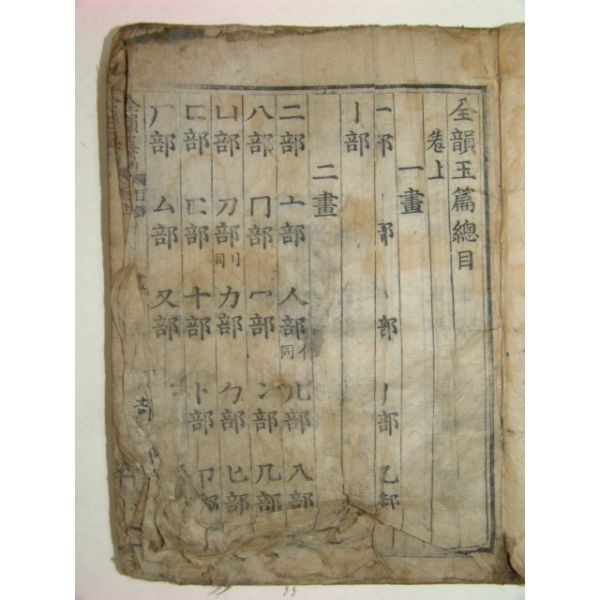 全韻玉篇總目
卷上
一畫
一部 丨部 丶部 丿部 乙部
亅部
二畫
二部 亠部 人部 亻同 儿部 入部
八部 冂部 冖部 冫部 几部
凵部 刀部 刂同 力部 勹部 匕部
匚部 匸部 十部 卜部 卩部
厂部 厶部 又部
全韻玉篇